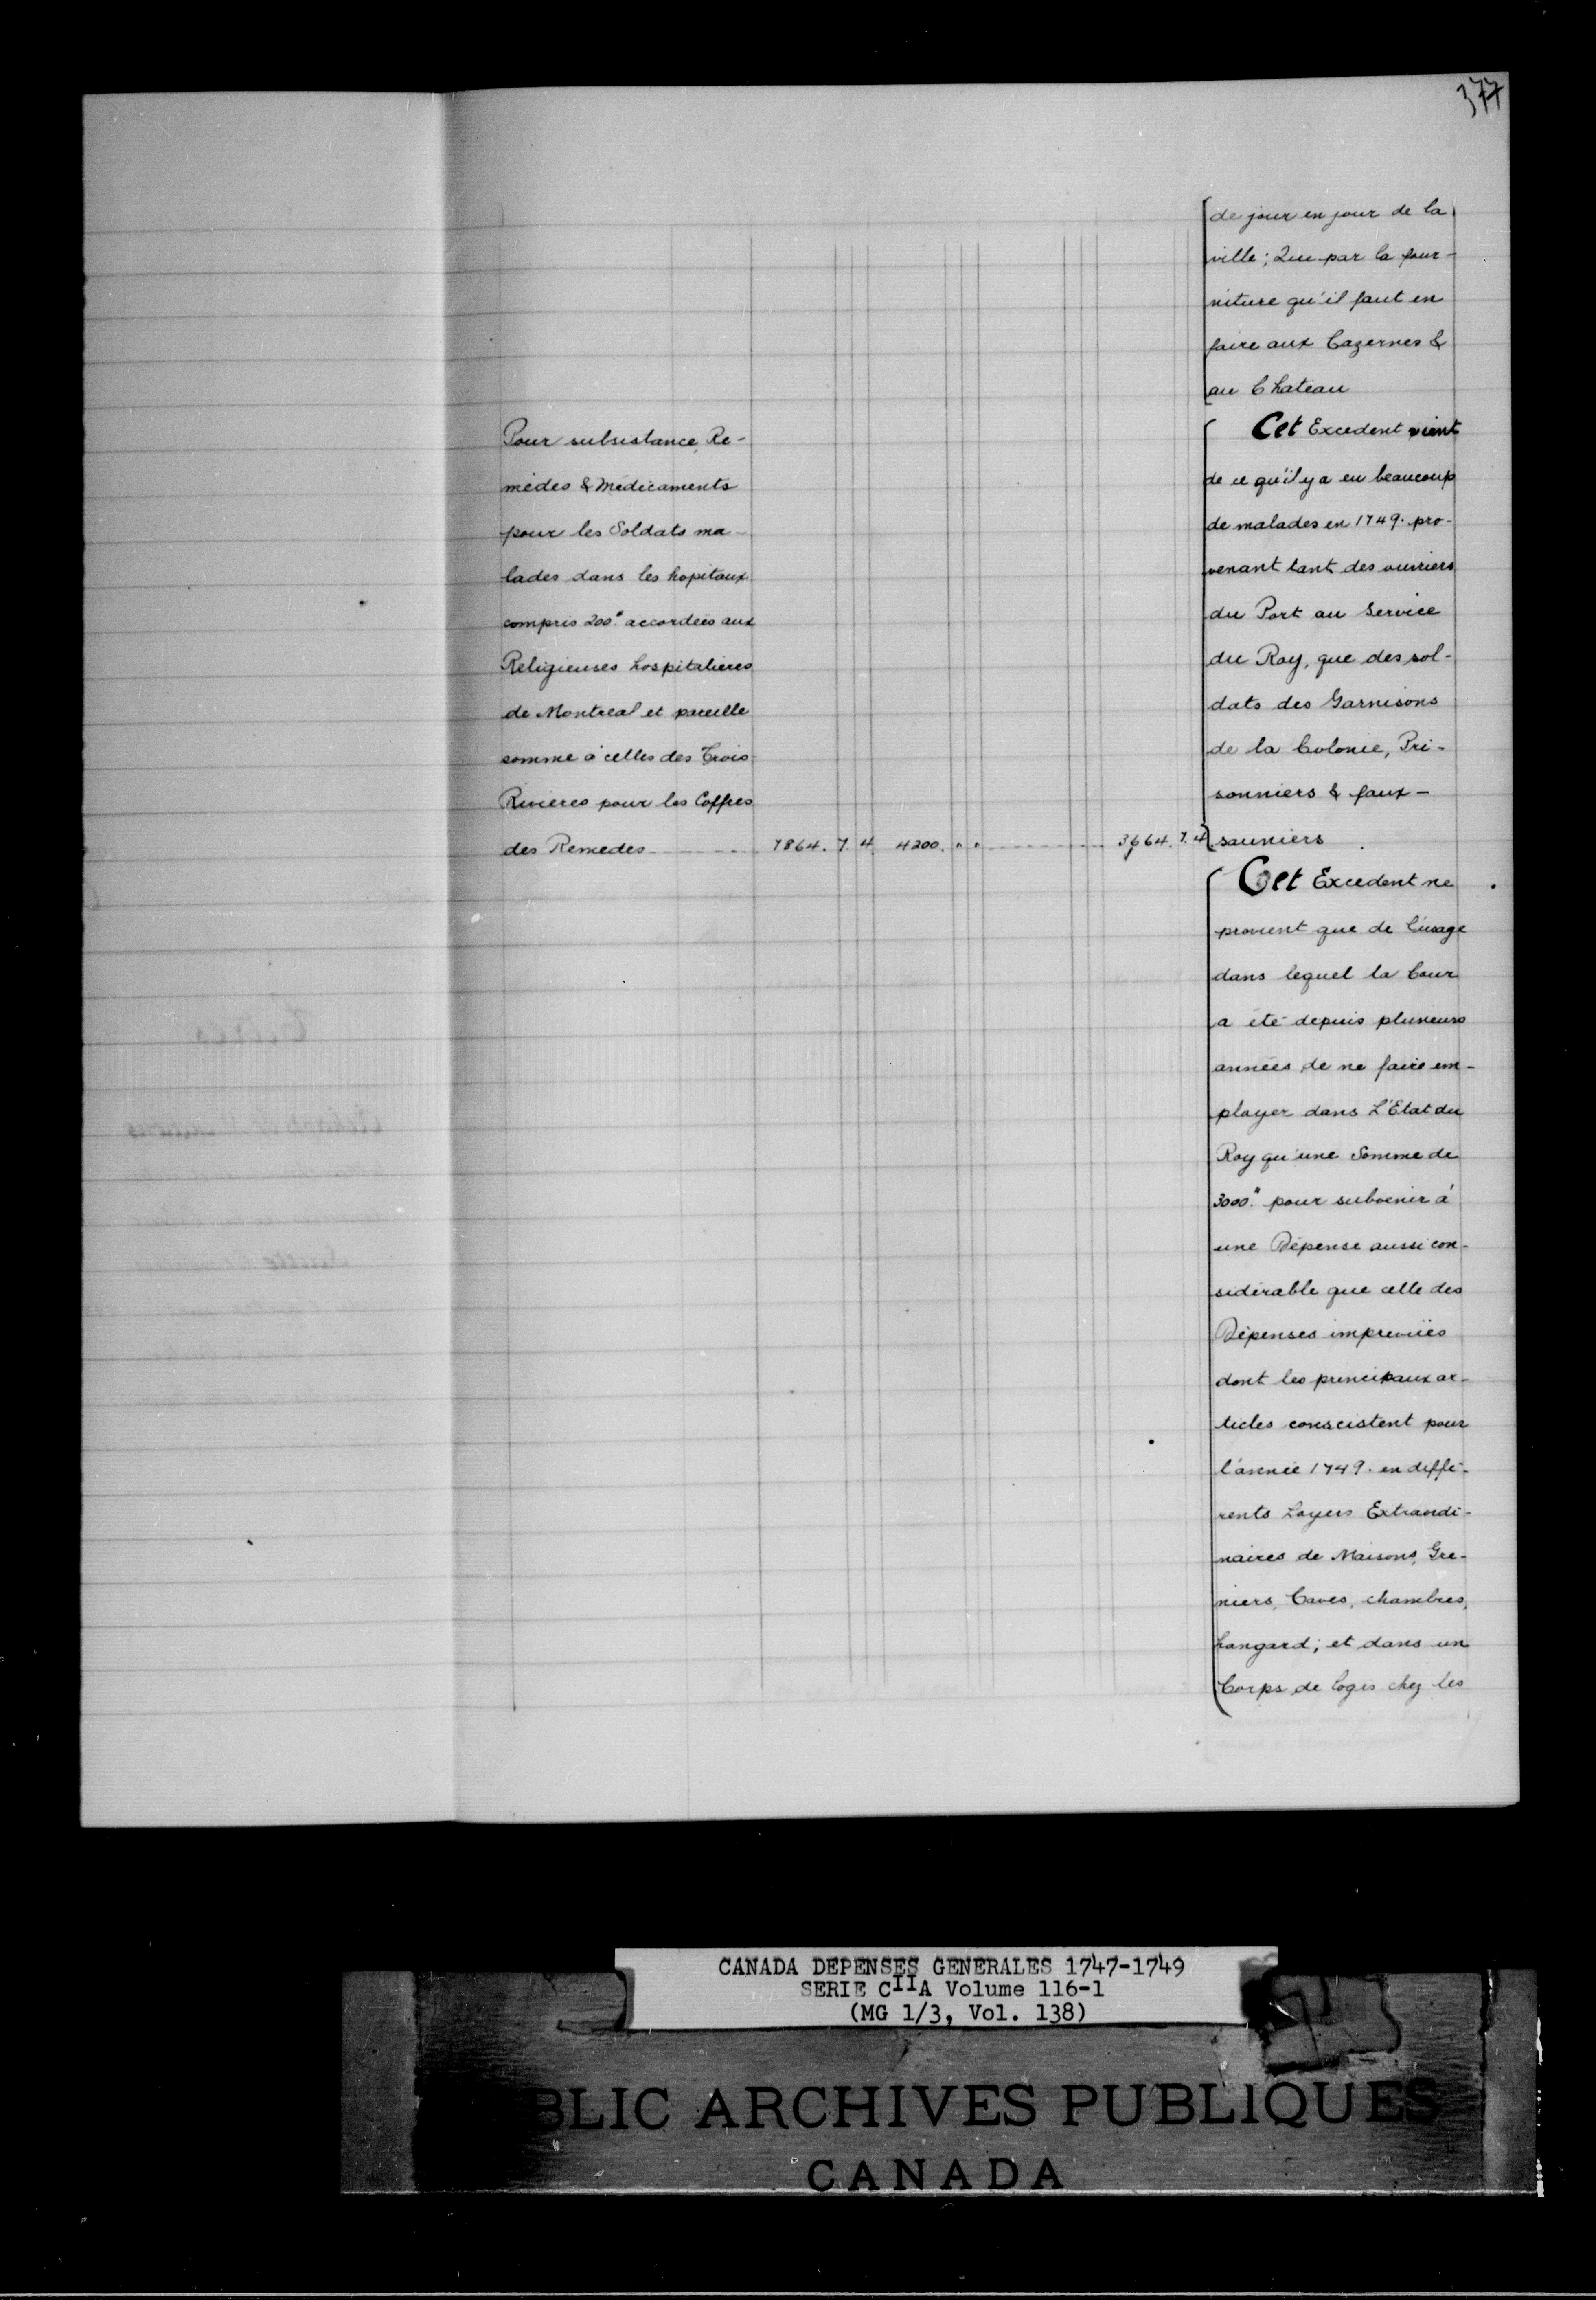 377
de jour en jour de la
ville; Que par la four-
niture qu'il faut en
faire aux Cazernes &
au Chateau
Pour subsistance, Re-
mèdes & Médicaments
pour les Soldats ma-
lades dans les hopitaux
compris 200# accordées aux
Religieuses hospitalieres
de Montreal et pareille
somme à celles des Trois-
Rivieres pour les Coffres
des Remedes 7864. 7. 4. 4200. " " 3664. 7. 4
Cet Excedent vient
de ce qu'il y a eu beaucoup
de malades en 1749. pro-
venant tant des ouvriers
du Port au Service
du Roy, que des sol-
dats des Garnisons
de la Colonie, Pri-
sonniers & faux-
sauniers
Cet Excedent ne
provient que de l'usage
dans lequel la Cour
a été depuis plusieurs
années de ne faire em-
ployer dans L'Etat du
Roy qu'une Somme de
3000.# pour subvenir à
une Dépense aussi con-
sidérable que celle des
Dépenses imprevües
dont les principaux ar-
ticles conscistent pour
l'année 1749. en diffé-
rents Loyers Extraordi-
naires de Maisons, Gre-
niers, Caves, chambres,
hangard; et dans un
Corps de logis chez les
CANADA DEPENSES GENERALES 1747-1749
SERIE CIIA Volume 116-1
(MG 1/3, Vol. 138)
BLIC ARCHIVES PUBLIQUES
CANADA